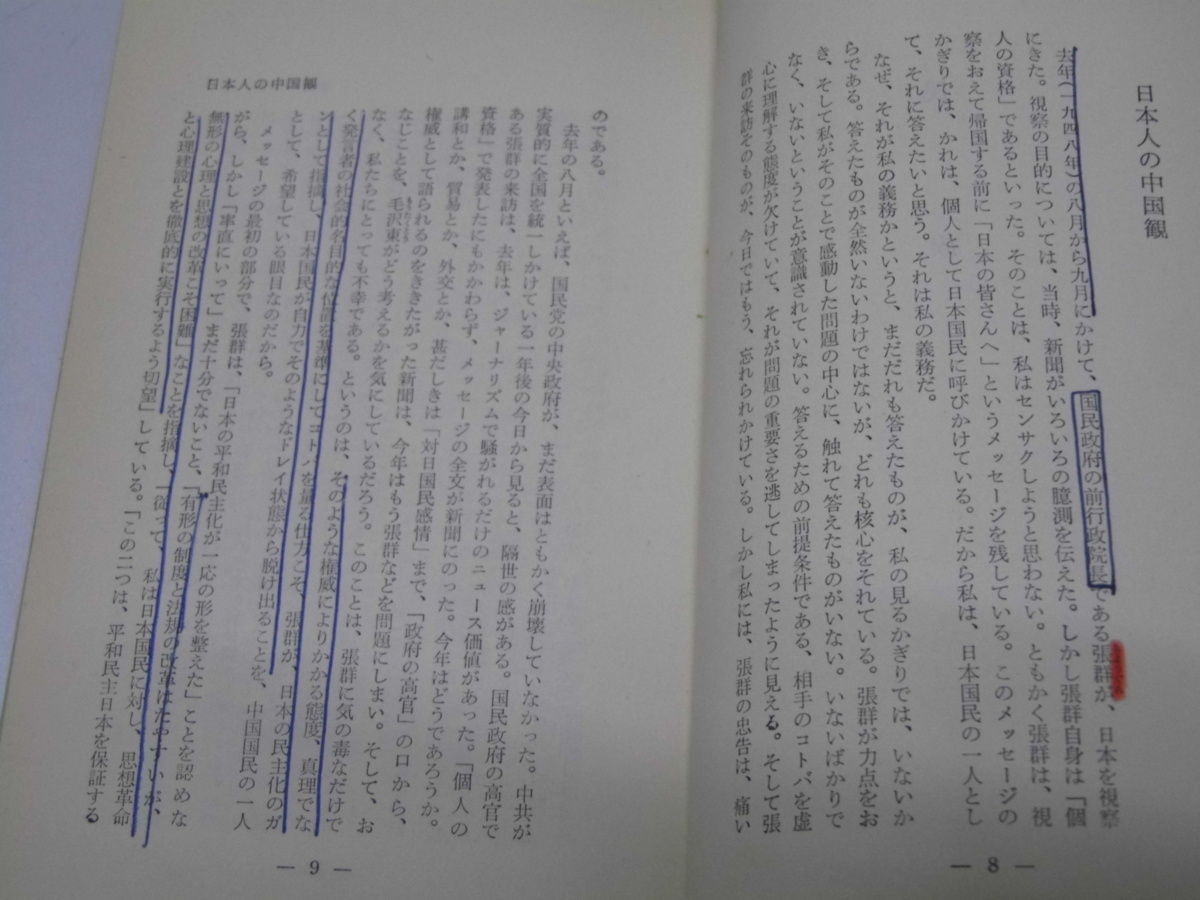 日本人の中国観
去年(一九四八年)の八月から九月にかけて、国民政府の前行政院長である張群が、日本を視察
にきた。視察の目的については、当時、新聞がいろいろの臆測を伝えた。しかし張群自身は「個
人の資格」であるといった。そのことは、私はセンサクしようと思わない。ともかく張群は、視
察をおえて帰国する前に「日本の皆さんへ」というメッセージを残している。このメッセージの
かぎりでは、かれは、個人として日本国民に呼びかけている。だから私は、日本国民の一人とし
て、それに答えたいと思う。それは私の義務だ。
なぜ、それが私の義務かというと、まだだれも答えたものが、私の見るかぎりでは、いないか
らである。答えたものが全然いないわけではないが、どれも核心をそれている。張群が力点をお
き、そして私がそのことで感動した問題の中心に、触れて答えたものがいない。いないばかりで
なく、いないということが意識されていない。答えるための前提条件である、相手のコトバを虚
心に理解する態度が欠けていて、それが問題の重要さを逃してしまったように見える。そして張
群の来訪そのものが、今日ではもう、忘れられかけている。しかし私には、張群の忠告は、痛い
— 8 —
日本人の中国観
のである。
去年の八月といえば、国民党の中央政府が、まだ表面はともかく崩壊していなかった。中共が
実質的に全国を統一しかけている一年後の今日から見ると、隔世の感がある。国民政府の高官で
ある張群の来訪は、去年は、ジャーナリズムで騒がれるだけのニュース価値があった。「個人の
資格」で発表したにもかかわらず、メッセージの全文が新聞にのった。今年はどうであろうか。
講和とか、貿易とか、外交とか、甚だしきは「対日国民感情」まで、「政府の高官」の口から、
権威として語られるのをききたがった新聞は、今年はもう張群などを問題にしまい。そして、お
なじことを、毛沢東がどう考えるかを気にしているだろう。このことは、張群に気の毒なだけで
なく、私たちにとっても不幸である。というのは、そのような権威によりかかる態度、真理でな
く発言者の社会的名目的な位置を基準にしてコトバを量る仕方こそ、張群が、日本の民主化のガ
ンとして指摘し、日本国民が自力でそのようなドレイ状態から脱け出ることを、中国国民の一人
として、希望している眼目なのだから。
メッセージの最初の部分で、張群は、「日本の平和民主化が一応の形を整えた」ことを認めな
がら、しかし「率直にいって」まだ十分でないこと、「有形の制度と法規の改革はたやすいが、
無形の心理と思想の改革こそ困難」なことを指摘し、「従って、私は日本国民に対し、思想革命
と心理建設とを徹底的に実行するよう切望」している。「この二つは、平和民主日本を保証する
— 9 —